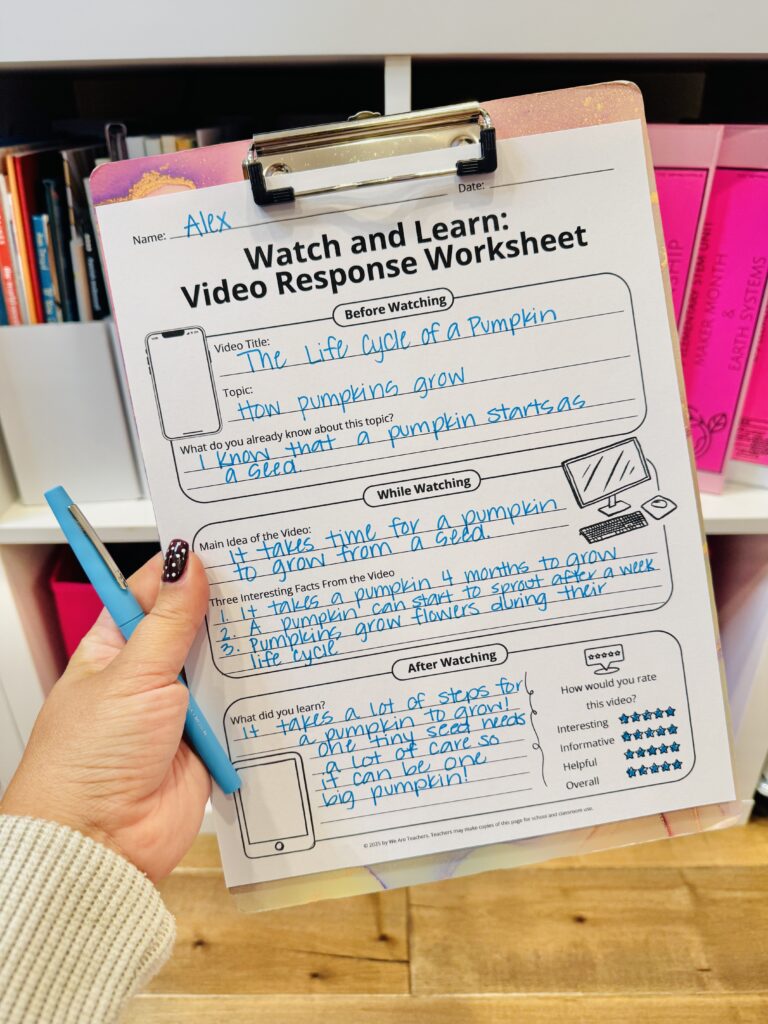 Name: Alex
Date:
Watch and Learn:
Video Response Worksheet
Before Watching
Video Title:
The Life Cycle of a Pumpkin
Topic:
How pumpkins grow
What do you already know about this topic?
I know that a pumpkin starts as
a seed.
While Watching
Main Idea of the Video:
It takes time for a pumpkin
to grow from a seed.
Three Interesting Facts From the Video
1. It takes a pumpkin 4 months to grow
2. A pumpkin can start to sprout after a week
3. Pumpkins grow flowers during their
life cycle
After Watching
What did you learn?
It takes a lot of steps for
a pumpkin to grow!
one tiny seed needs
a lot of care so
it can be one
big pumpkin!
How would you rate
this video?
Interesting
Informative
Helpful
Overall
© 2025 by We Are Teachers. Teachers may make copies of this page for school and classroom use.
MAKER MONTH
&
EARTH SYSTEMS
STEM UNIT